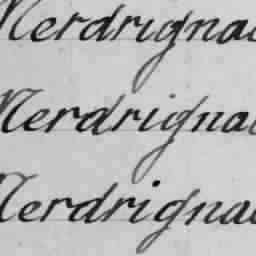 Merdrignac
Merdrignac
Merdrignac